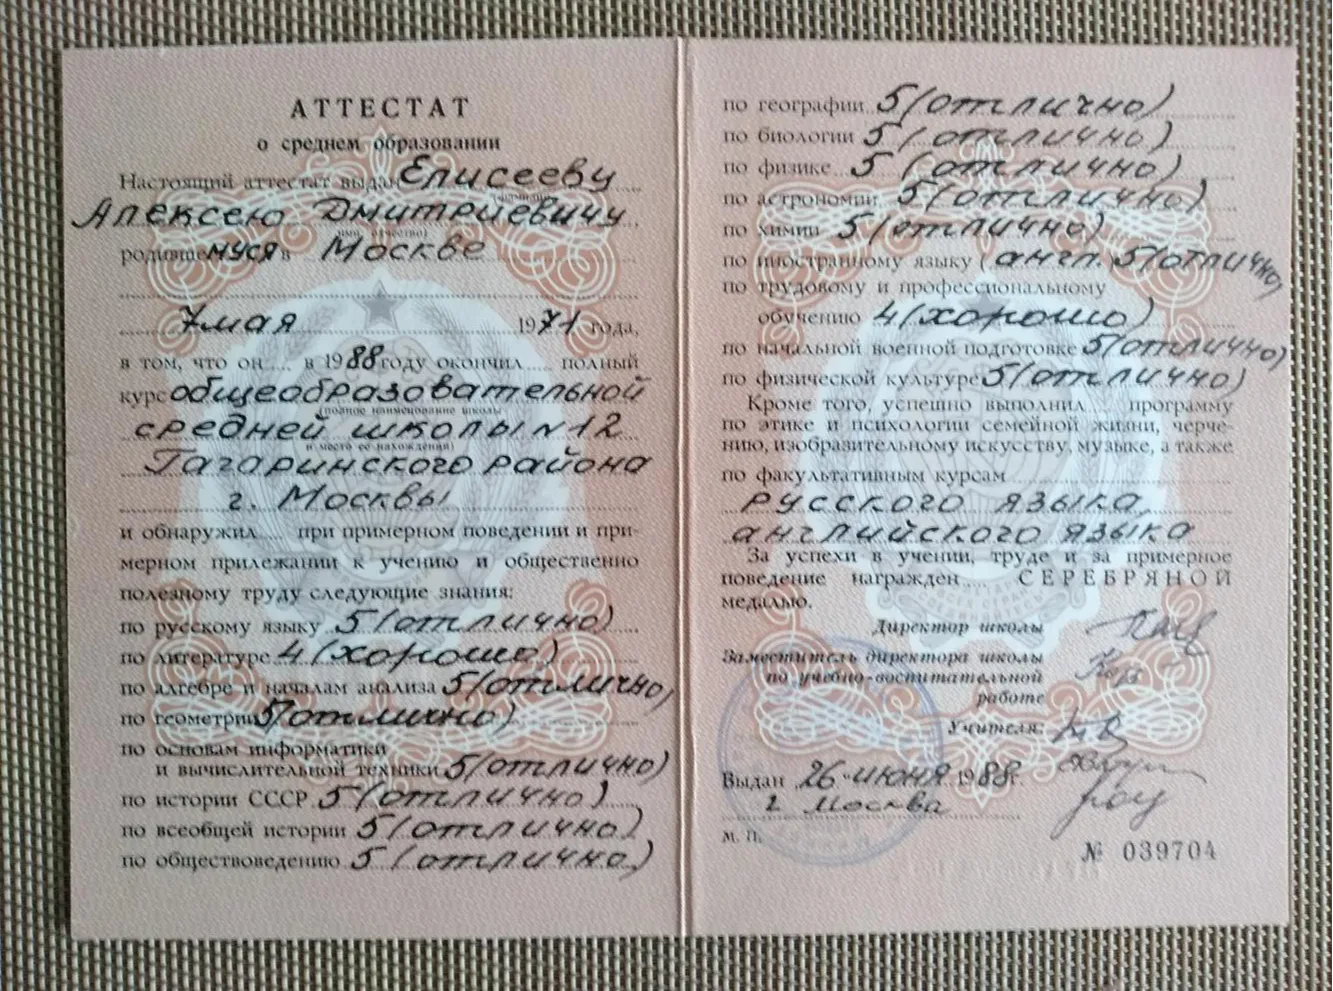 АТТЕСТАТ
о среднем образовании
Настоящий аттестат выдан Елисееву
(фамилия,
Алексею Дмитриевичу,
имя, отчество)
родившемуся в Москве
7 мая 1971 года,
в том, что он .... в 1988 году окончил .... полный
курс общеобразовательной
(полное наименование школы
средней школы №12
и место ее нахождения)
Гагаринского района
г. Москвы
и обнаружил .... при примерном поведении и при-
мерном прилежании к учению и общественно
полезному труду следующие знания:
по русскому языку 5 (отлично)
по литературе 4 (хорошо)
по алгебре и началам анализа 5 (отлично)
по геометрии 5 (отлично)
по основам информатики
и вычислительной техники 5 (отлично)
по истории СССР 5 (отлично)
по всеобщей истории 5 (отлично)
по обществоведению 5 (отлично)
по географии 5 (отлично)
по биологии 5 (отлично)
по физике 5 (отлично)
по астрономии 5 (отлично)
по химии 5 (отлично)
по иностранному языку (англ.) 5 (отлично)
по трудовому и профессиональному
обучению 4 (хорошо)
по начальной военной подготовке 5 (отлично)
по физической культуре 5 (отлично)
Кроме того, успешно выполнил .... программу
по этике и психологии семейной жизни, черче-
нию, изобразительному искусству, музыке, а также
по факультативным курсам
русского языка,
английского языка
За успехи в учении, труде и за примерное
поведение награжден .... СЕРЕБРЯНОЙ
медалью.
Директор школы
Заместитель директора школы
по учебно-воспитательной
работе
Учителя:
Выдан „26" июня 1988 г.
г. Москва
М. П.
№ 039704